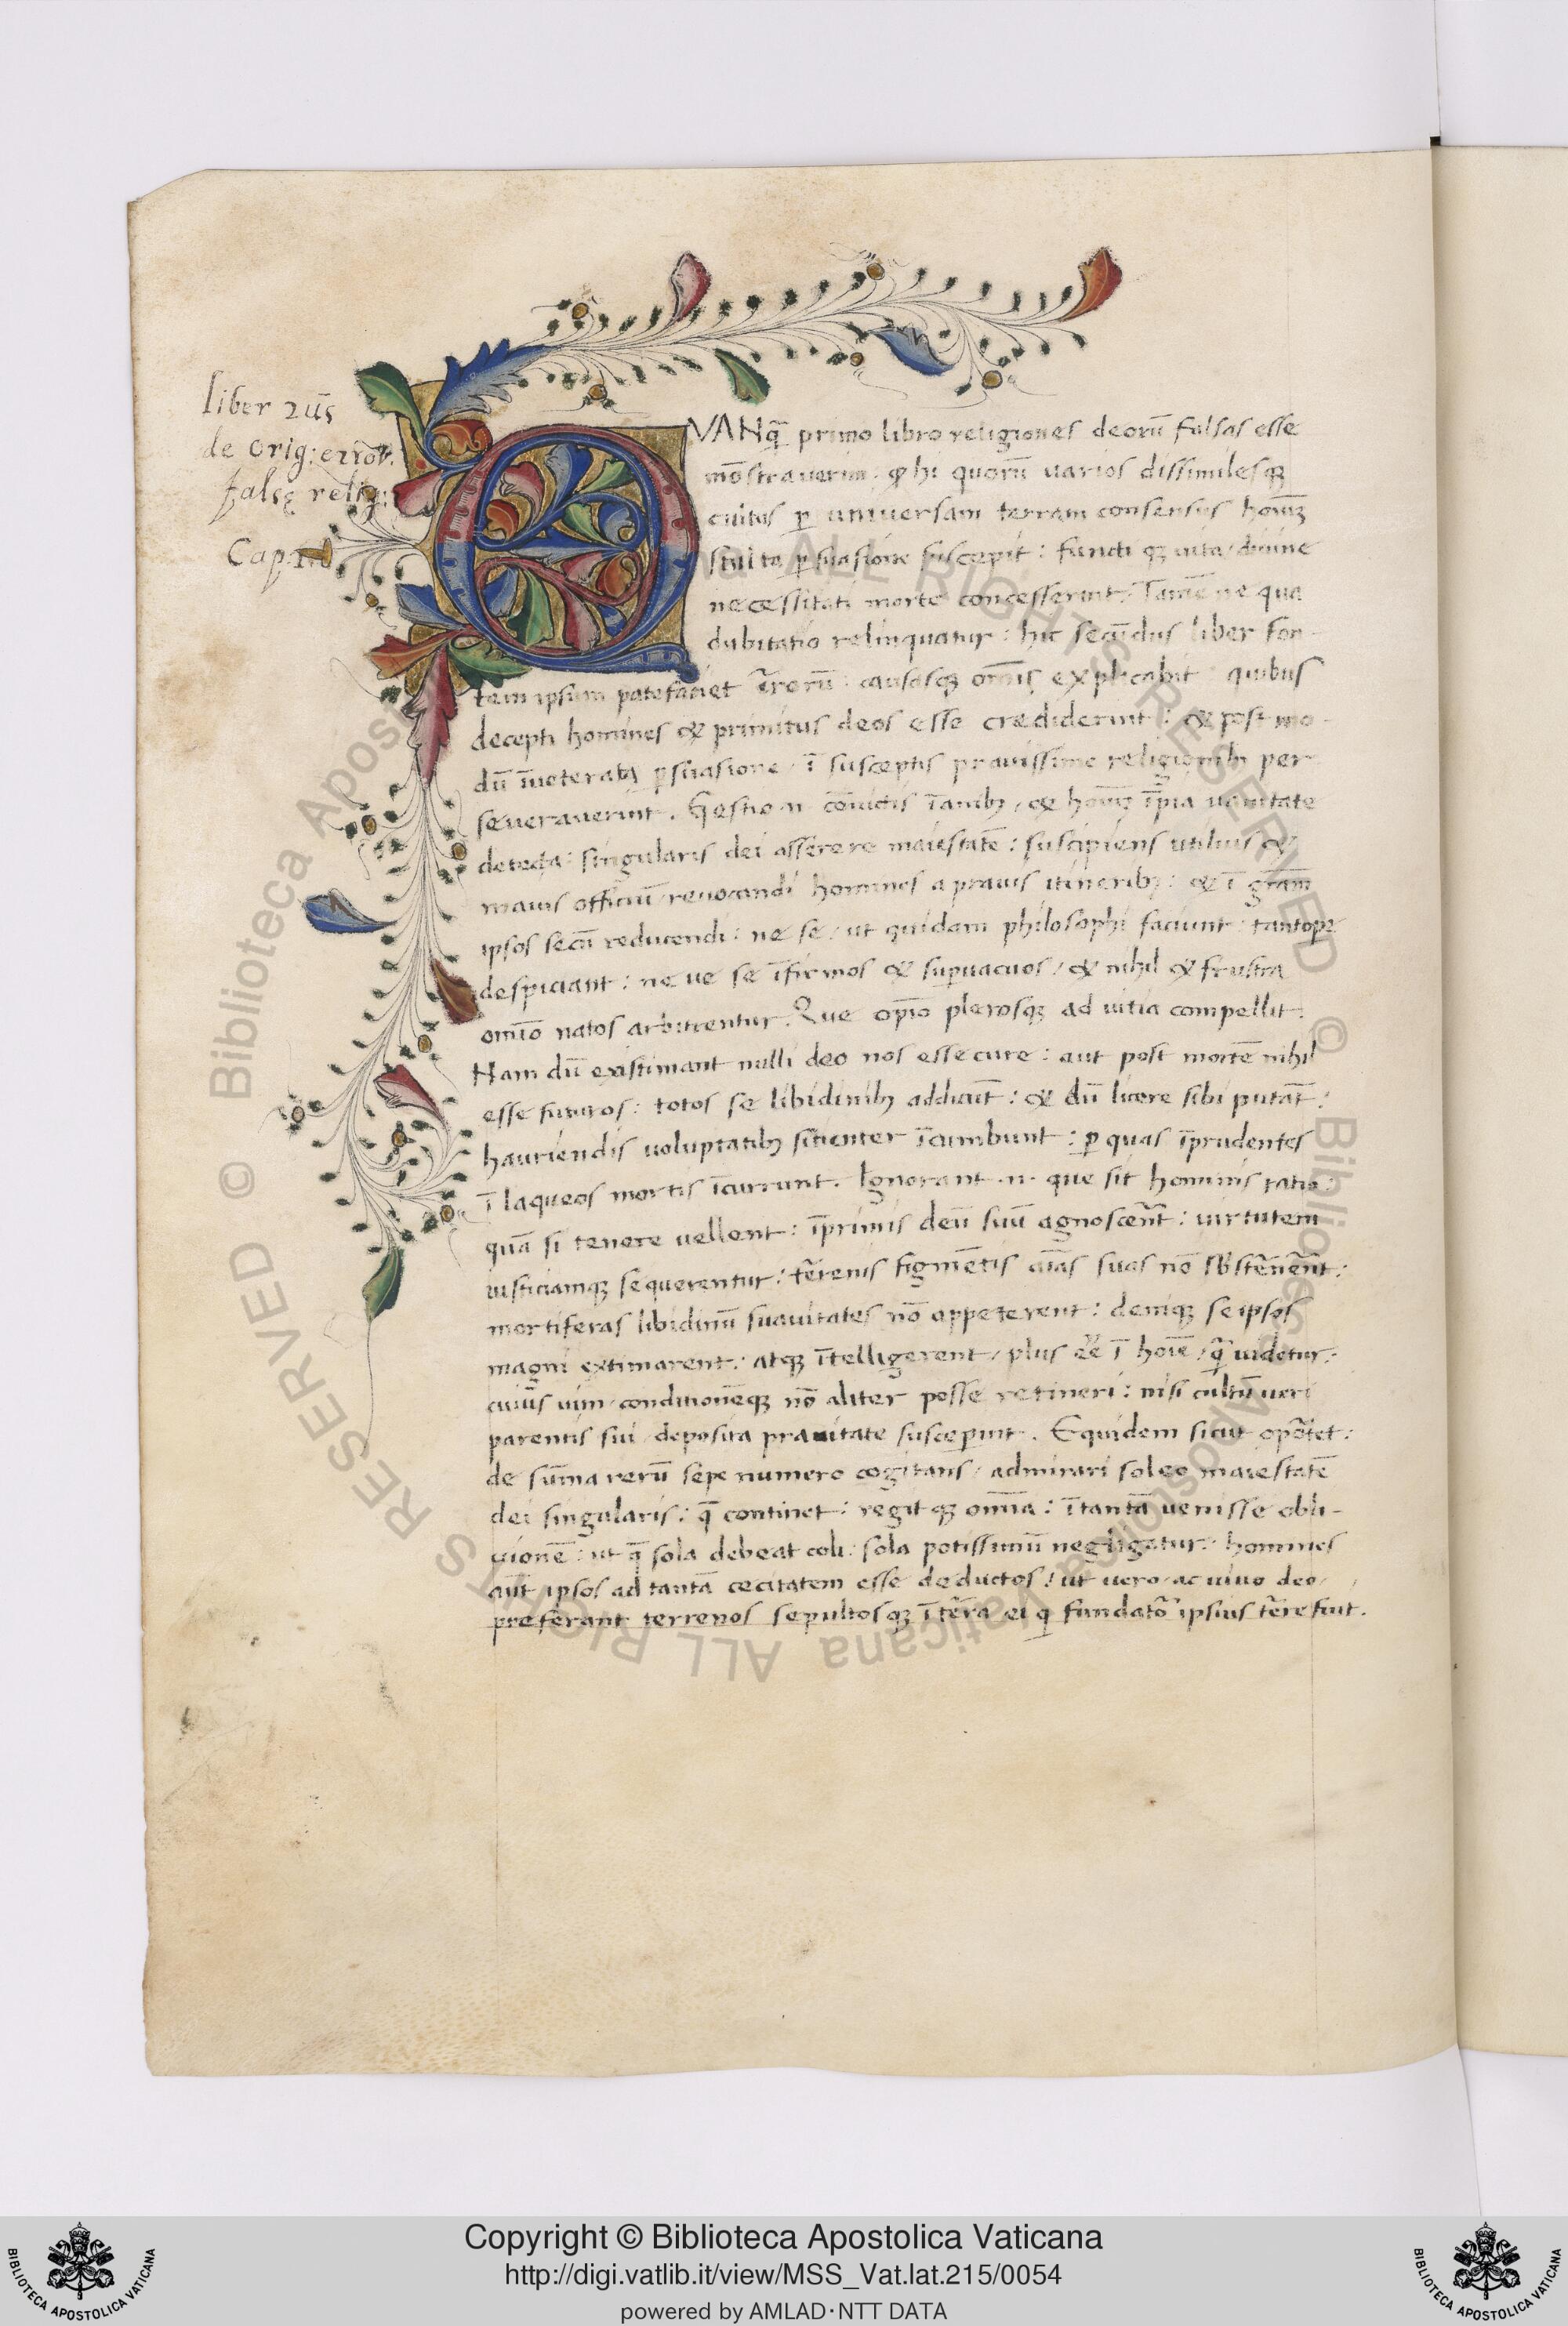 liber 2us̄
de orig: error̄.
falsę relig:
Cap. 1m
QVANq̄ primo libro religiones deorū falsas esse
mōstrauerim: ꝙ hi quorū uarios dissimilesqꝫ
cultus ꝑ uniuersam terram consensus hoīuꝫ
stulta ꝑsuasione suscepit: functi qꝫ uita diuine
necessitati morte concesserint: Tamē ne qua
dubitatio relinquatur: hic secūdus liber fon-
tem ipsum patefaciet ērrorū: causasqꝫ omīs explicabit: quibus
decepti homines & primitus deos esse crediderint: & post mo-
dū īueterata ꝑsuasione/ ī susceptis prauissime religionibꝫ per
seuerauerint. Gestio .n. cōuictis īanibꝫ/ & hoīuꝫ īpia uanitate
detecta: singularis dei asserere maiestatē: suscipiens utilius &
maius officiū/ reuocandi homines a prauis itineribꝫ: & ī grām
ipsos secū reducendi: ne se/ ut quidam philosophi faciunt: tantopꝫ
despiciant: ne ue se īfirmos & suꝑuacuos/ & nihil & frustra
omīo natos arbitrentur. Que opīo plerosqꝫ ad uitia compellit.
Nam dū existimant nulli deo nos esse cure: aut post mortē nihil
esse futuros: totos se libidinibꝫ addicūt: & dū licere sibi putāt:
hauriendis uoluptatibꝫ sitienter īcumbunt: ꝑ quas īprudentes
ī laqueos mortis īcurrunt. Ignorant .n. que sit hominis ratio:
quā si tenere uellent: īprimis deū suū agnoscerēt: uirtutem
iusticiamqꝫ sequerentur: tērenis figmētis aīas suas nō
mortiferas libidinū suauitates nō appeterent: deniqꝫ se ipsos
magni extimarent: atqꝫ ītelligerent/ plus eē ī hoīe/ q̄ uidetur:
cuius uim conditionēqꝫ nō aliter posse retineri: nisi cultū ueri
parentis sui deposita prauitate susceꝑint. Equidem sicut oportet:
de sūma rerū sepe numero cogitans/ admirari soleo maiestatē
dei singularis: q̄ continet: regit qꝫ omīa: ī tantā uenisse obli-
uionē: ut q̄ sola debeat coli: sola potissimū negligatur: homines
aūt ipsos ad tantā cecitatem esse deductos/ ut uero ac uiuo deo/
preferant terrenos sepultosqꝫ ī tēra ei q fundatō ipsius tēre fuit.
© Biblioteca Apostolica Vaticana ALL RIGHTS RESERVED © Biblioteca Apostolica Vaticana ALL RIGHTS RESERVED
Copyright © Biblioteca Apostolica Vaticana
http://digi.vatlib.it/view/MSS_Vat.lat.215/0054
powered by AMLAD·NTT DATA
BIBLIOTECA APOSTOLICA VATICANA
BIBLIOTECA APOSTOLICA VATICANA